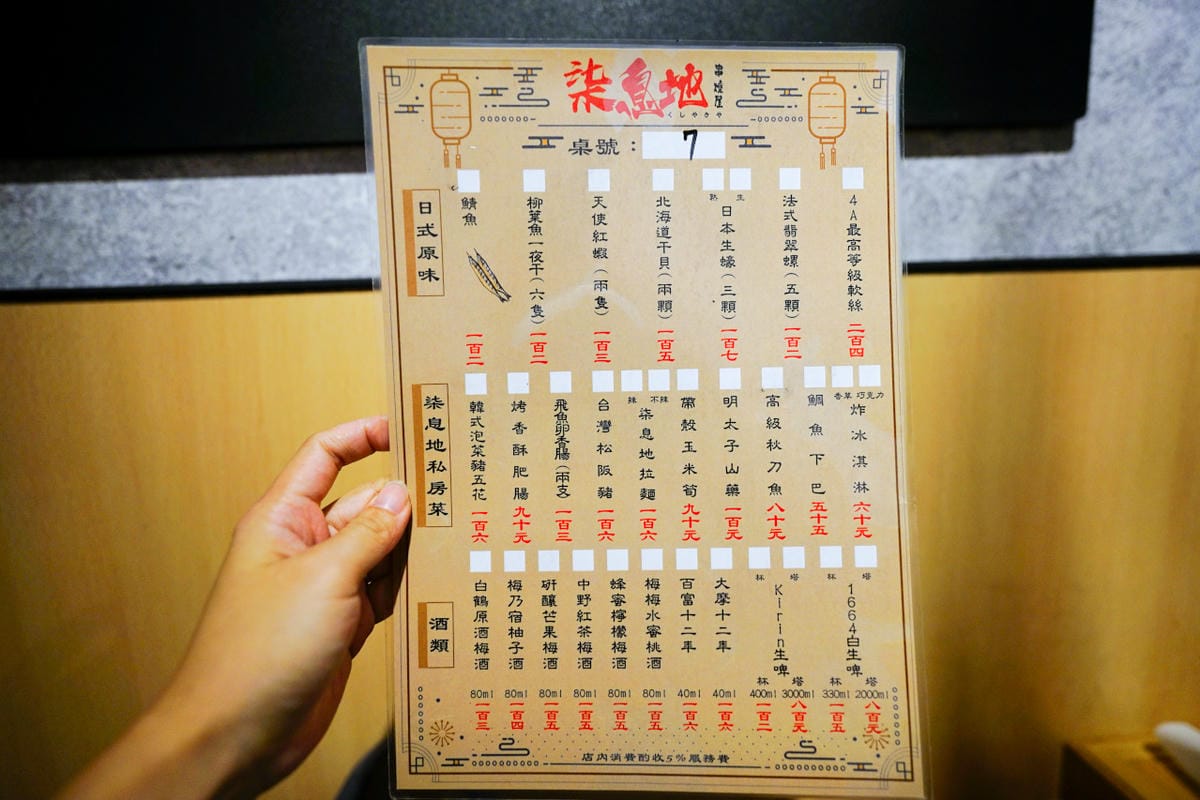 柒息地
串燒屋
くしやきや
桌號：7
日式原味
4A最高等級軟絲 二百四
法式翡翠螺（五顆） 一百二
熟 生
日本生蠔（三顆） 一百七
北海道干貝（兩顆） 一百五
天使紅蝦（兩隻） 一百三
柳葉魚一夜干（六隻） 一百二
鯖魚 一百二
柒息地私房菜
香草 巧克力
炸冰淇淋 六十元
鯛魚下巴 五十五
高級秋刀魚 八十元
明太子山藥 一百元
帶殼玉米筍 九十元
辣 不辣
柒息地拉麵 一百六
台灣松阪豬 一百六
飛魚卵香腸（兩支） 一百三
烤香酥肥腸 九十元
韓式泡菜豬五花 一百六
酒類
杯 塔
1664白生啤
杯 330ml 一百五
塔 2000ml 八百元
杯 塔
Kirin生啤
杯 400ml 一百二
塔 3000ml 八百元
大摩十二年 40ml 一百六
百富十二年 40ml 一百六
梅梅水蜜桃酒 80ml 一百五
蜂蜜檸檬梅酒 80ml 一百五
中野紅茶梅酒 80ml 一百五
研釀芒果梅酒 80ml 一百五
梅乃宿柚子酒 80ml 一百四
白鶴原酒梅酒 80ml 一百三
店內消費酌收5%服務費